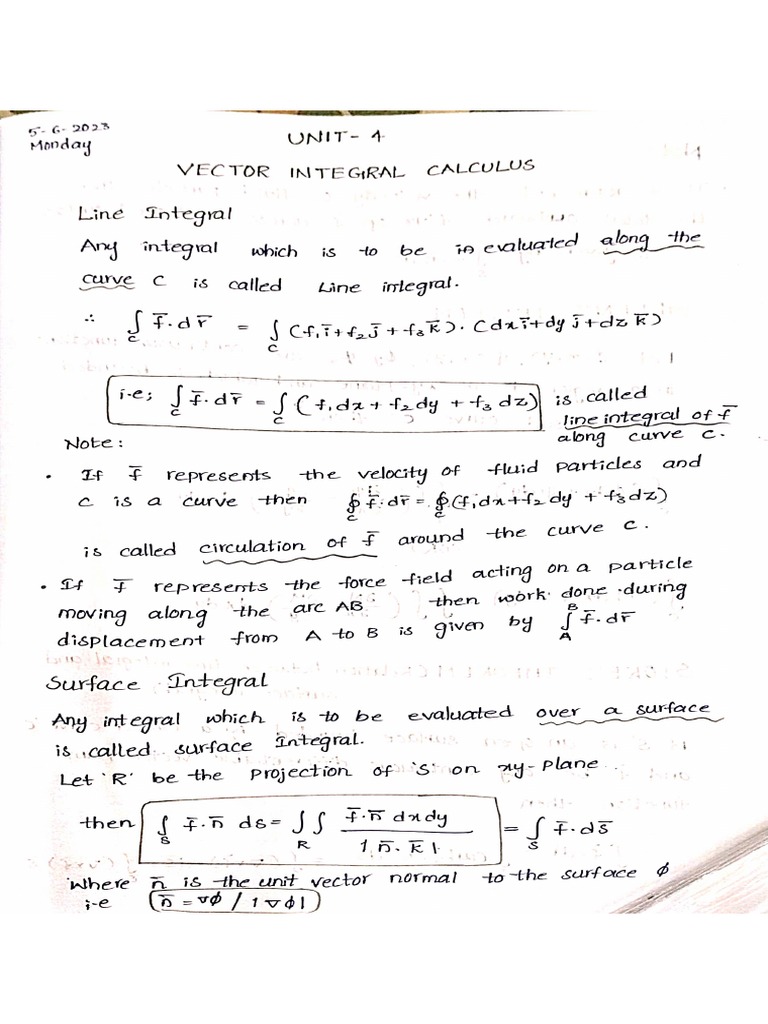 5-6-2023
Monday
UNIT-4
VECTOR INTEGRAL CALCULUS
Line Integral
Any integral which is to be in evaluated along the
curve C is called Line integral.
∴ ∫_C f̅.dr̅ = ∫_C (f₁i̅+f₂j̅+f₃k̅).(dxi̅+dyj̅+dzk̅)
i.e; ∫_C f̅.dr̅ = ∫_C (f₁dx+f₂dy+f₃dz) is called
line integral of f̅
along curve C.
Note:
• If f̅ represents the velocity of fluid particles and
C is a curve then ∮_C f̅.dr̅ = ∮_C (f₁dx+f₂dy+f₃dz)
is called circulation of f̅ around the curve C.
• If f̅ represents the force field acting on a particle
moving along the arc AB then work done during
displacement from A to B is given by ∫_A^B f̅.dr̅
Surface Integral
Any integral which is to be evaluated over a surface
is called surface Integral.
Let 'R' be the projection of 'S' on xy-plane
then ∫_S f̅.n̅ ds = ∫∫_R f̅.n̅ dxdy / |n̅.k̅| = ∫_S f̅.ds̅
Where n̅ is the unit vector normal to the surface ϕ
i.e n̅ = ∇ϕ / |∇ϕ|